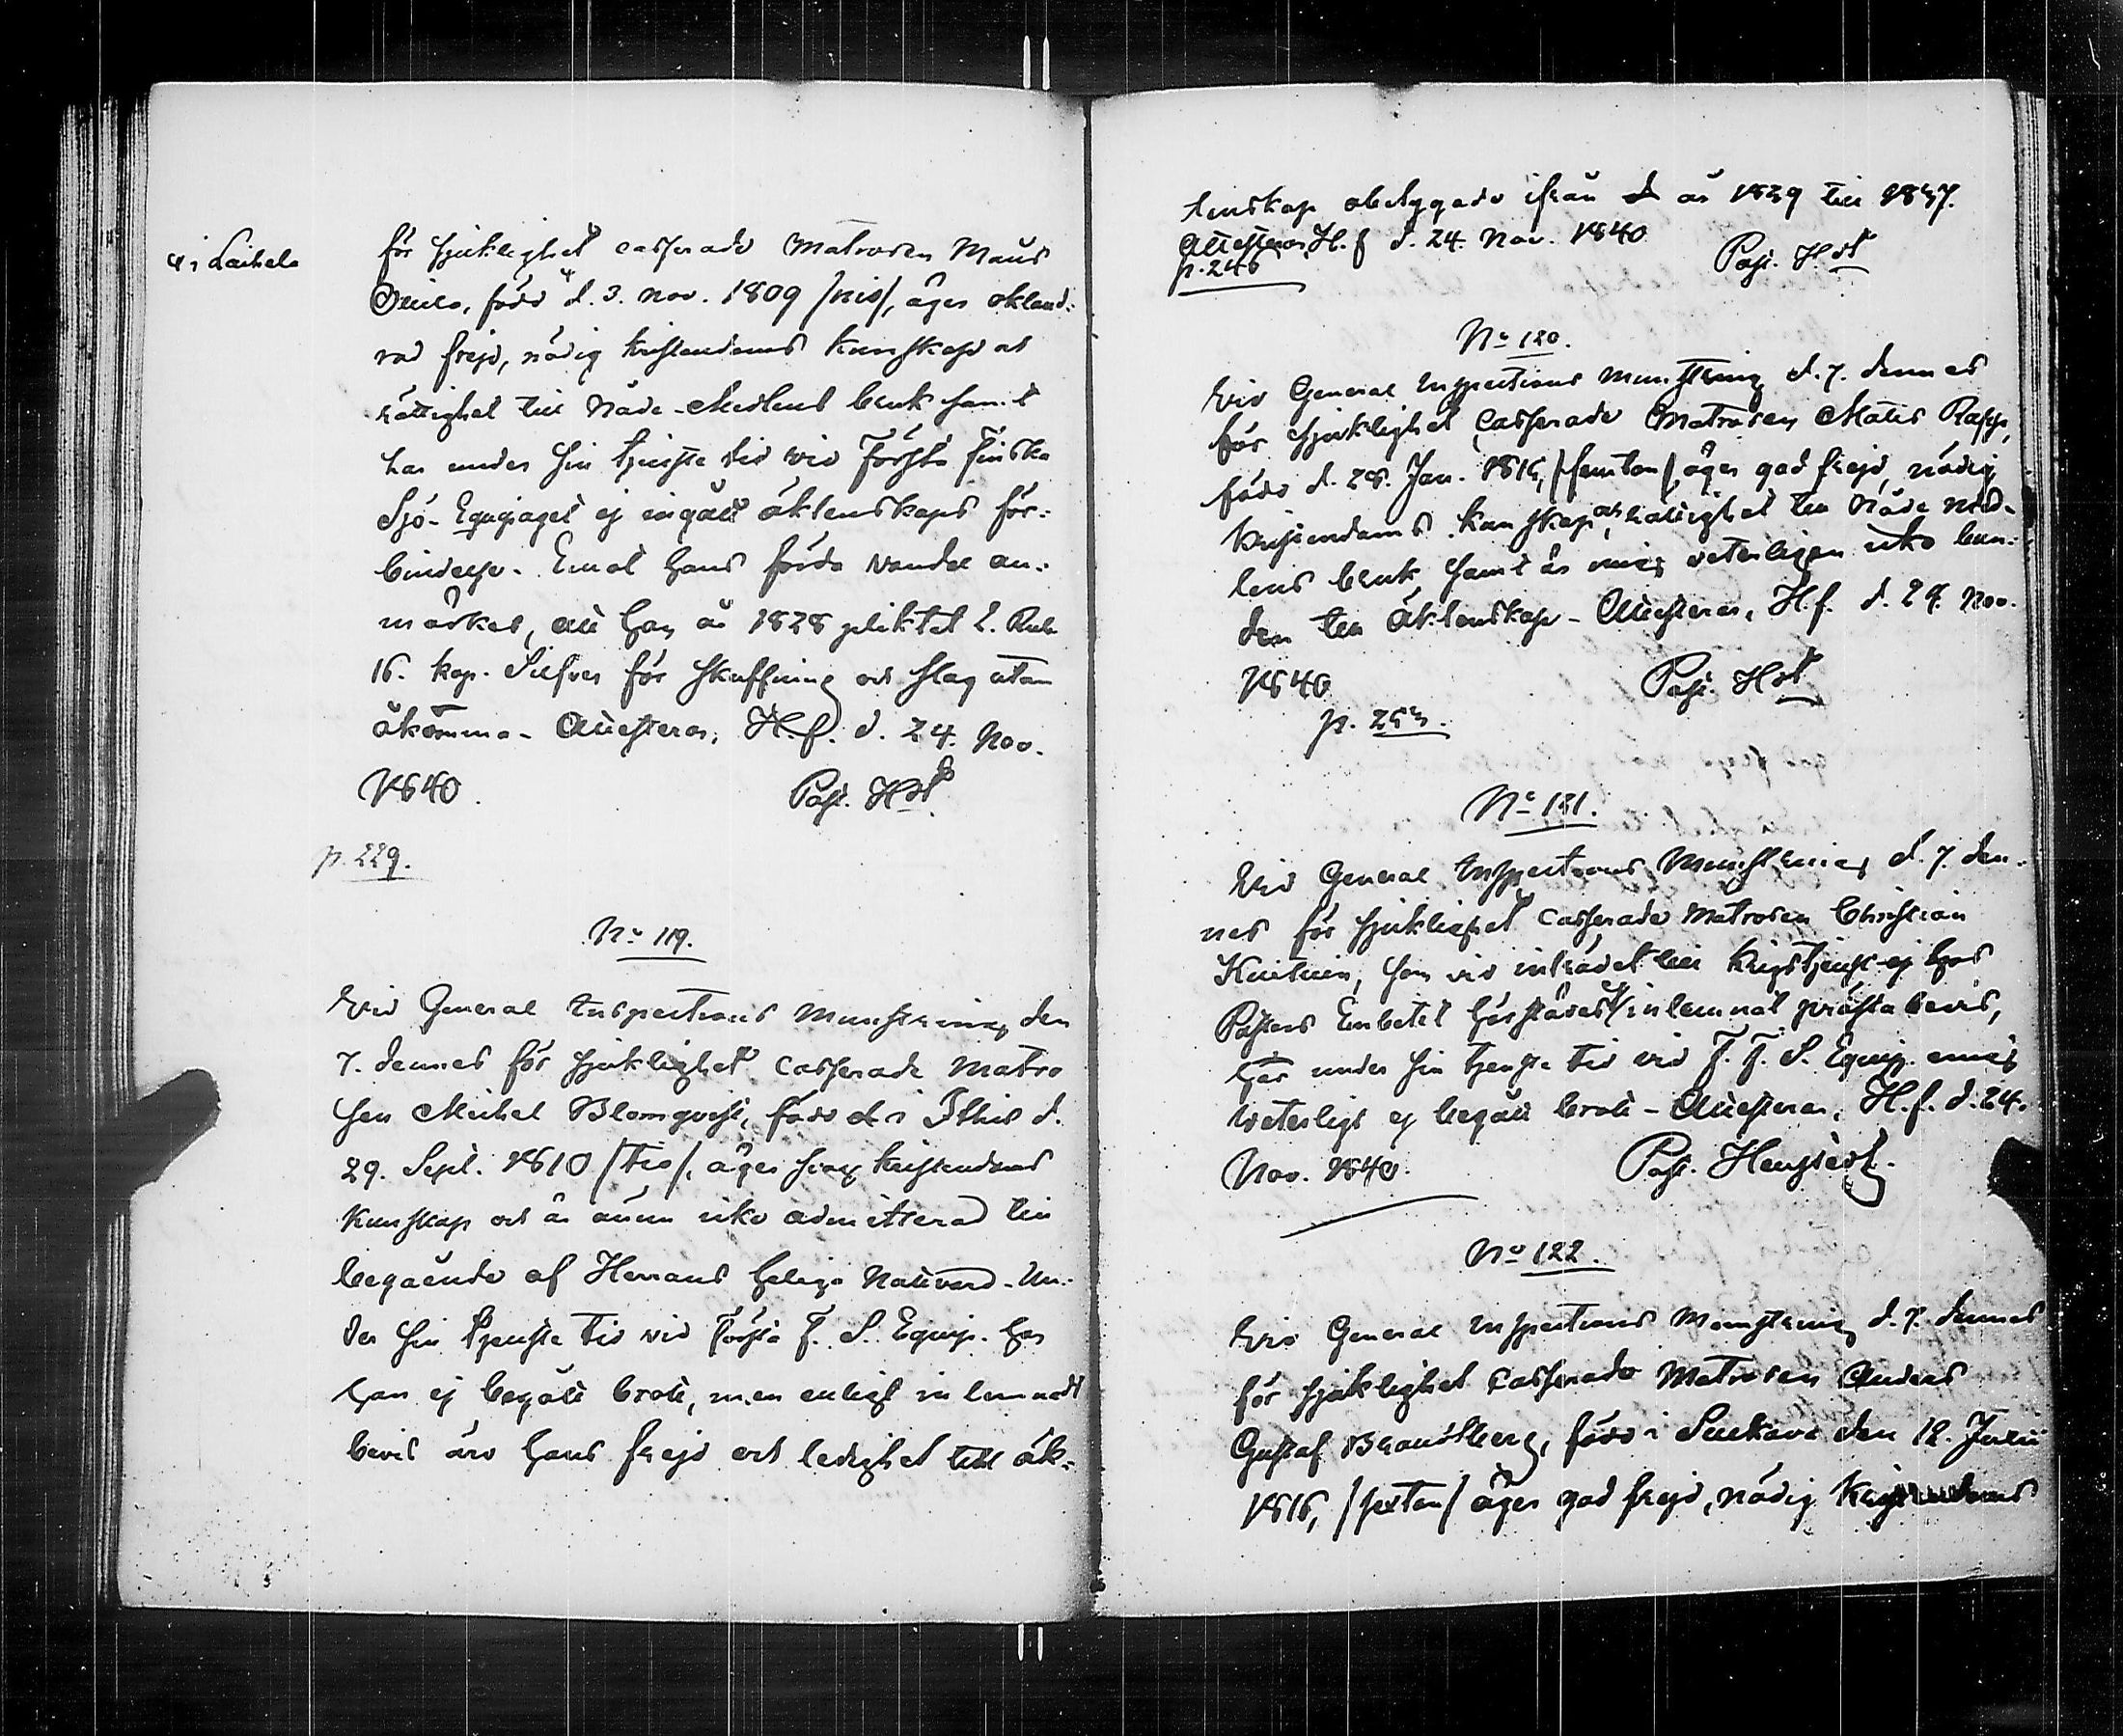 # i Laihela
för sjuklighet casserade Matrosen Mats
född # d. 3. Nov. 1809 /nio/, äger okland:
rad frejd, nödig kristendoms kunskap och
rättighet till Nåde-Medlens bruk samt
har under sin tjenste tid vid Första finska
Sjö-Equipaget ej ingått äktenskaps för:
bindelse. Emot hans förda vandel an:
märkes, att han år 1828 pliktat 2. Rub.
16. kop. Silfver för skuffning och slag utan
åkomma - Attesteras, H.f. d. 24. Nov.
1840. Past. Hst
p. 229.
No 119.
Vid General Inspections Munstering den
7. dennes för sjuklighet casserade Matro
sen Michel Blomqvist, född i Ithis d.
29. Sept. 1810 /tio/, äger svag kristendoms
kunskap och är ännu icke admitterad till
begående af Herrans heliga Nattvard. Un:
der sin tjenste tid vid första F. S. Equip. har
han ej begått brott, men enligt inlemnadt
bevis äro hans frejd och ledighet till äk:
tenskap obetyggade ifrån år 1829 till 1837.
Attesteras, H.f. d. 24. Nov. 1840
p. 246 Past. Hst
No 120.
Vid General Inspections Munstering d. 7. dennes
för sjuklighet casserade Matrosen Matts Rapp,
född d. 28. Jan. 1815, /femton/, äger god frejd, nödig
kristendoms kunskap och rättighet till Nåde med-
lens bruk samt är mig veterligen icke bun:
den till äktenskap - Attesteras, H.f. d. 24. Nov.
1840 Past. Hst
p. 253.
No 121.
Vid General Inspections Munstering d. 7. den-
nes för sjuklighet casserade Matrosen Christian
som vid inträdet till krigstjenst ej hos
Pastors Embetet härstädes inlemnat prästabevis,
har under sin tjenste tid vid F. F. S. Equip. mig
veterligt ej begått brott - Attesteras, H.f. d. 24.
Nov. 1840. Past.
No 122.
Vid General Inspections Munstering d. 7. dennes
för sjuklighet casserade Matrosen Anders
Gustaf Brandtberg, född i Sulkava den 12. Julii
1816, /sexton/ äger god frejd, nödig kristendoms